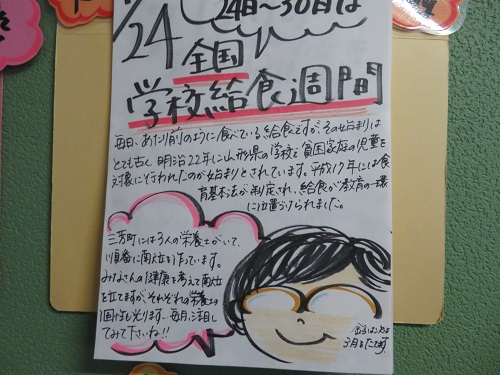 24日〜30日は
24
全国
学校給食週間
毎日、あたり前のように食べている給食ですが、その始まりは
とても古く明治22年に山形県の学校で貧困家庭の児童を
対象に行われたのが始まりとされています。平成17年には食
育基本法が制定され、給食が教育の一環
に位置づけられました。
三芳町には3人の栄養士がいて、
順番に献立を作っています。
みなさんの健康を考えて献立
を立てますが、それぞれの栄養士の
個性も光ります。毎月、注目し
てみて下さいね!!